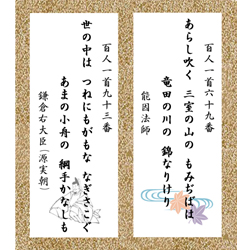 百人一首六十九番
あらし吹く 三室の山の もみぢばは
竜田の川の 錦なりけり
能因法師
百人一首九十三番
世の中は つねにもがもな なぎさこぐ
あまの小舟の 綱手かなしも
鎌倉右大臣(源実朝)